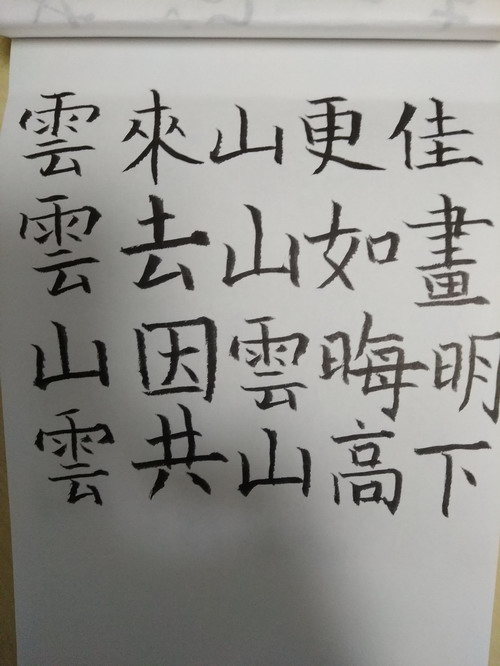 雲來山更佳
雲去山如畫
山因雲晦明
雲共山高下